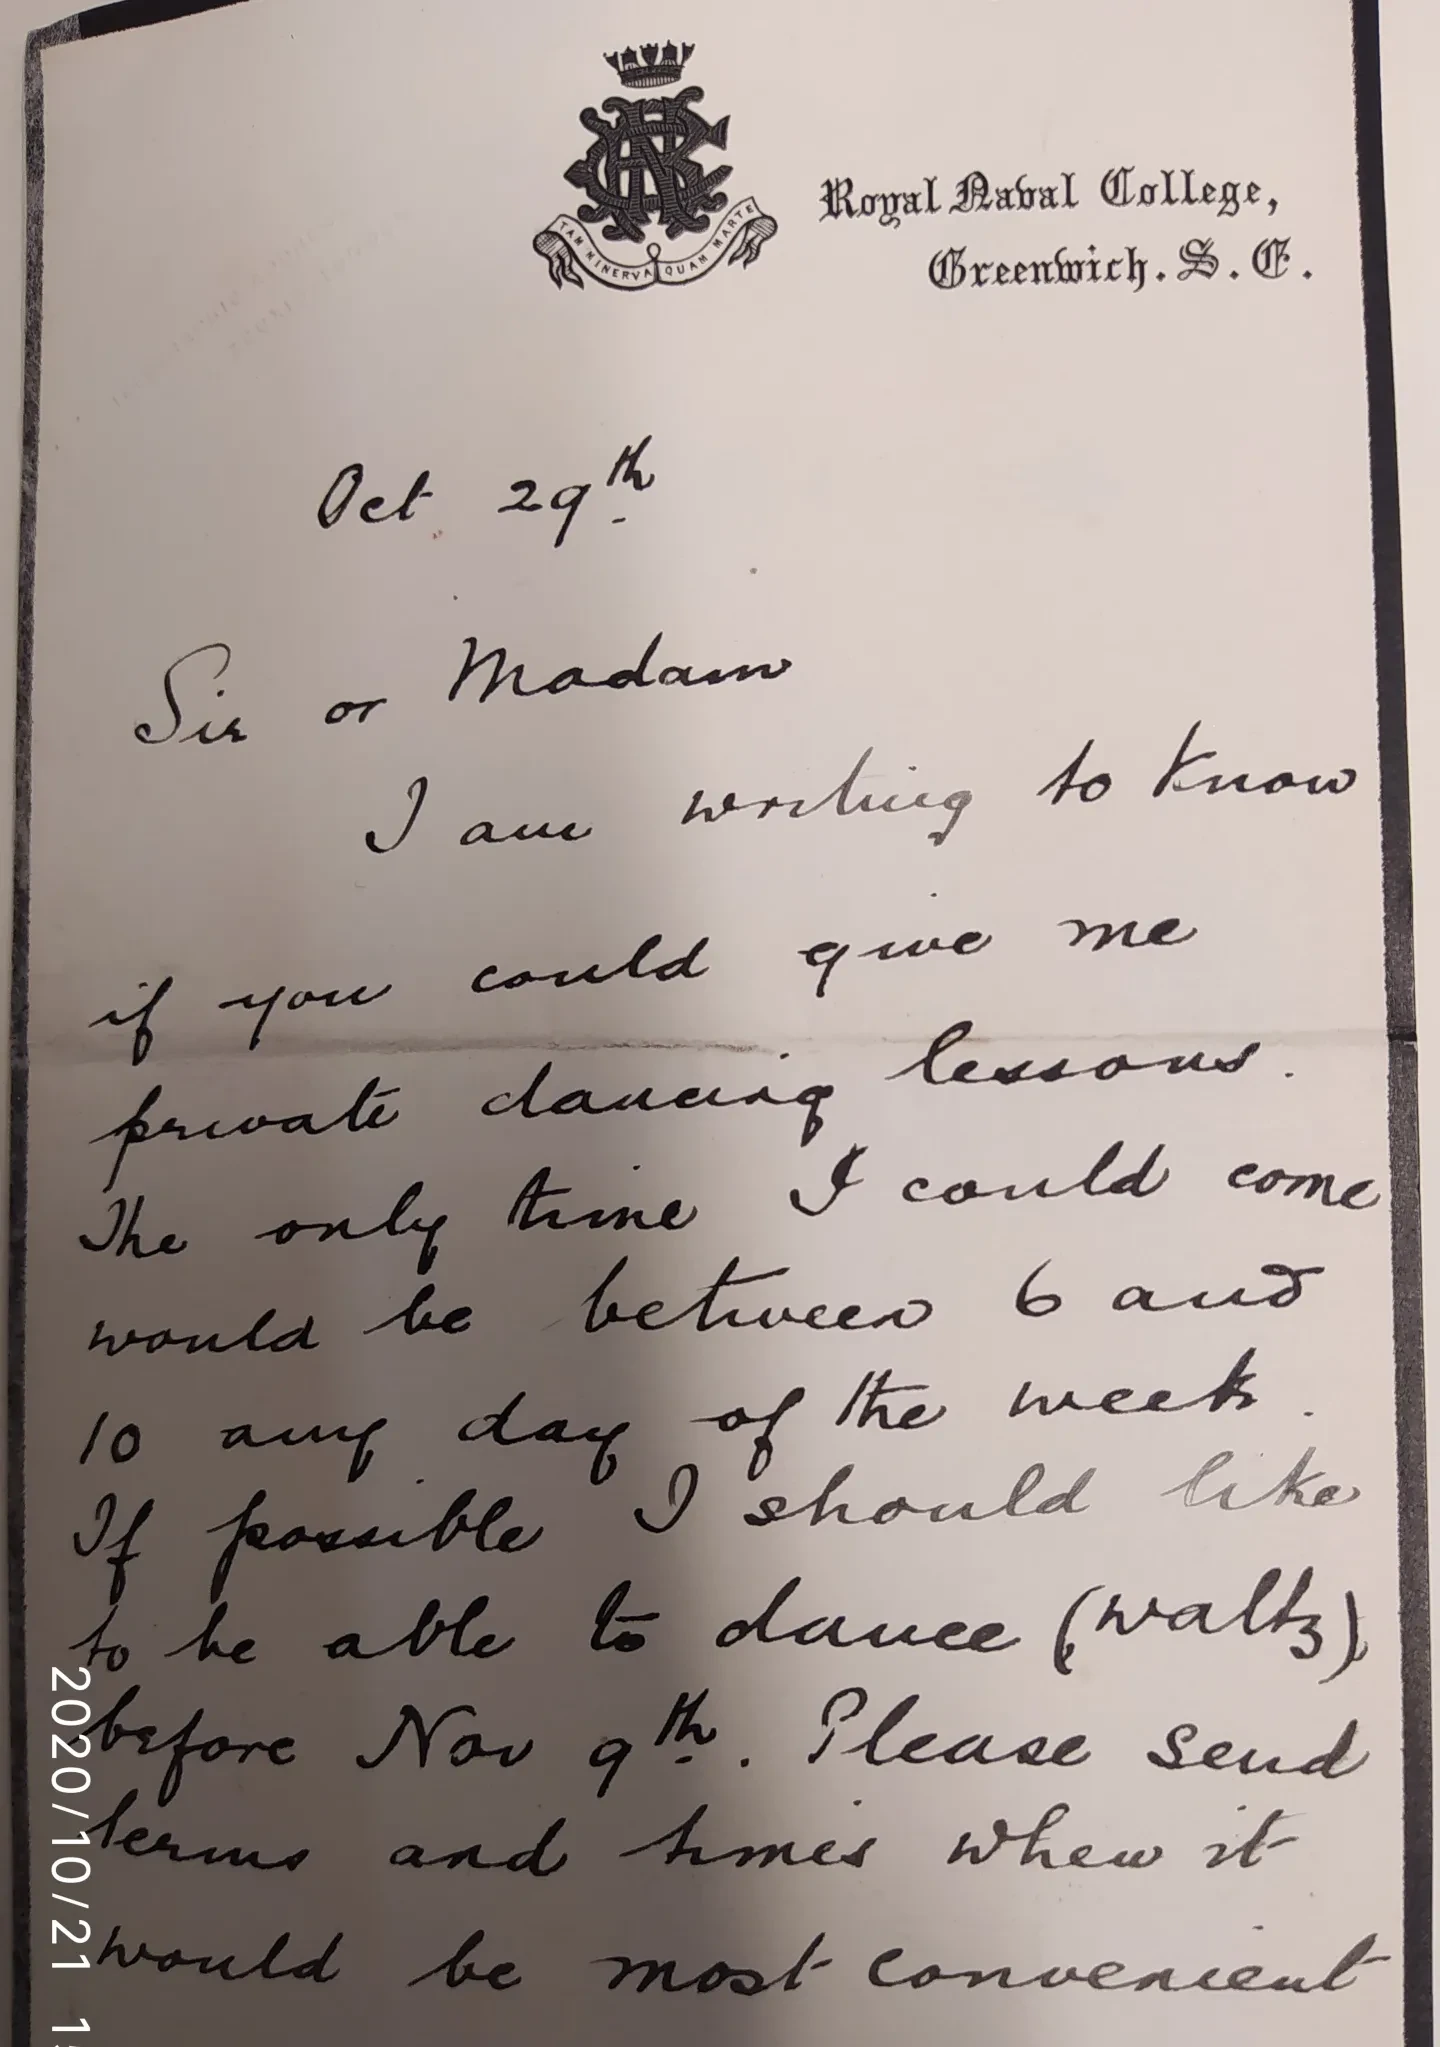 TAM MINERVA QUAM MARTE
Royal Naval College,
Greenwich. S. E.
Oct 29th
Sir or Madam
I am writing to know
if you could give me
private dancing lessons.
The only time I could come
would be between 6 and
10 any day of the week.
If possible I should like
to be able to dance (waltz)
before Nov 9th. Please send
terms and times when it
would be most convenient
2020/10/21